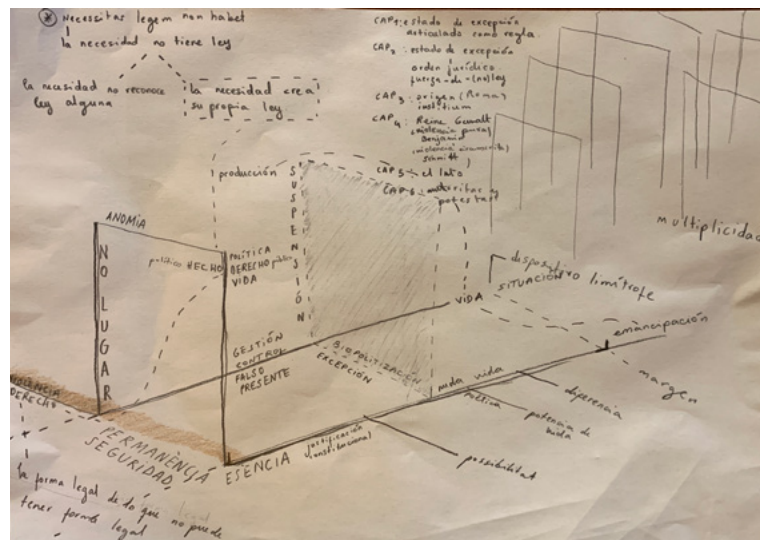 * Necessitas legem non habet
la necesidad no tiene ley
la necesidad no reconoce
ley alguna
la necesidad crea
su propia ley
CAP 1: estado de excepción
articulado como regla.
CAP 2: estado de excepción
orden jurídico
fuerza-de-(no)ley
CAP 3: origen (Roma)
iustitium
CAP 4: Reine Gewalt
(violencia pura)
Benjamin
(violencia
Schmitt)
CAP 5: el luto
CAP 6: auctoritas y
potestas
multiplicidad
producción
SUSPENSIÓN
ANOMIA
NO LUGAR
político HECHO
POLÍTICA
DERECHO público
VIDA
GESTIÓN
CONTROL
FALSO
PRESENTE
BIOPOLITIZACIÓN
EXCEPCIÓN
VIDA
dispositivo limítrofe
SITUACIÓN
emancipación
margen
nuda vida
diferencia
potencia de
possibilitat
justificación
institucional
ESENCIA
VIOLENCIA
DERECHO
PERMANENCIA
SEGURIDAD
la forma legal de lo que no puede
tener forma legal